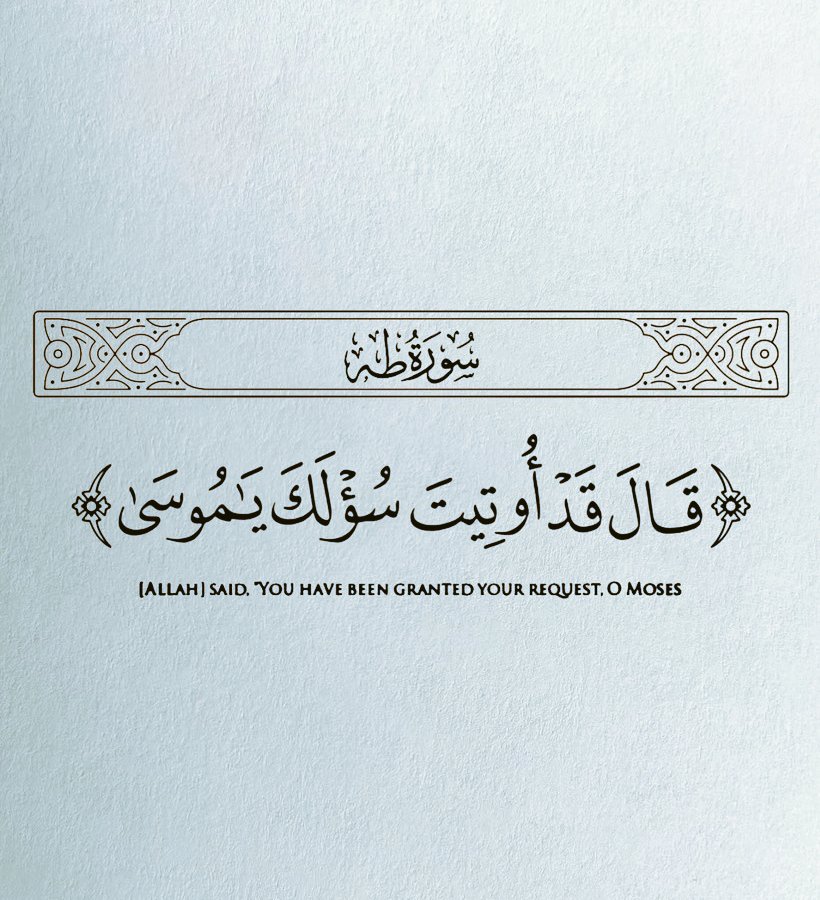 سُورَةُ طه
قَالَ قَدْ أُوتِيتَ سُؤْلَكَ يَٰمُوسَىٰ
[ALLAH] SAID, "YOU HAVE BEEN GRANTED YOUR REQUEST, O MOSES